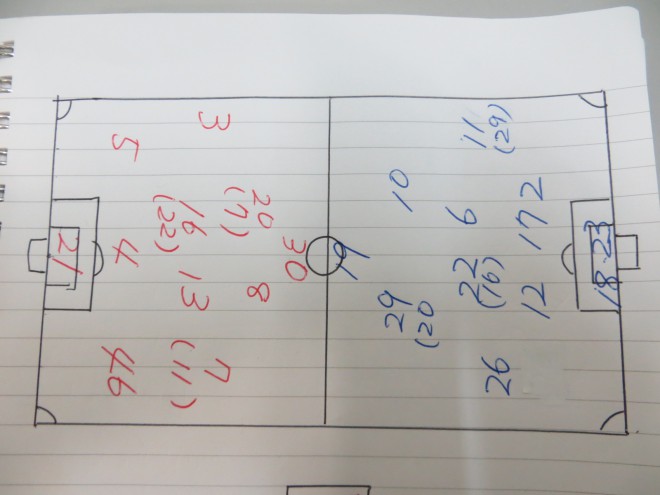 19
10
29
(20
6
22
(16)
11
(29)
26
12 17 2
18.23
30
20
(7)
8
3
7
(11)
16
(22)
13
5
4
46
21